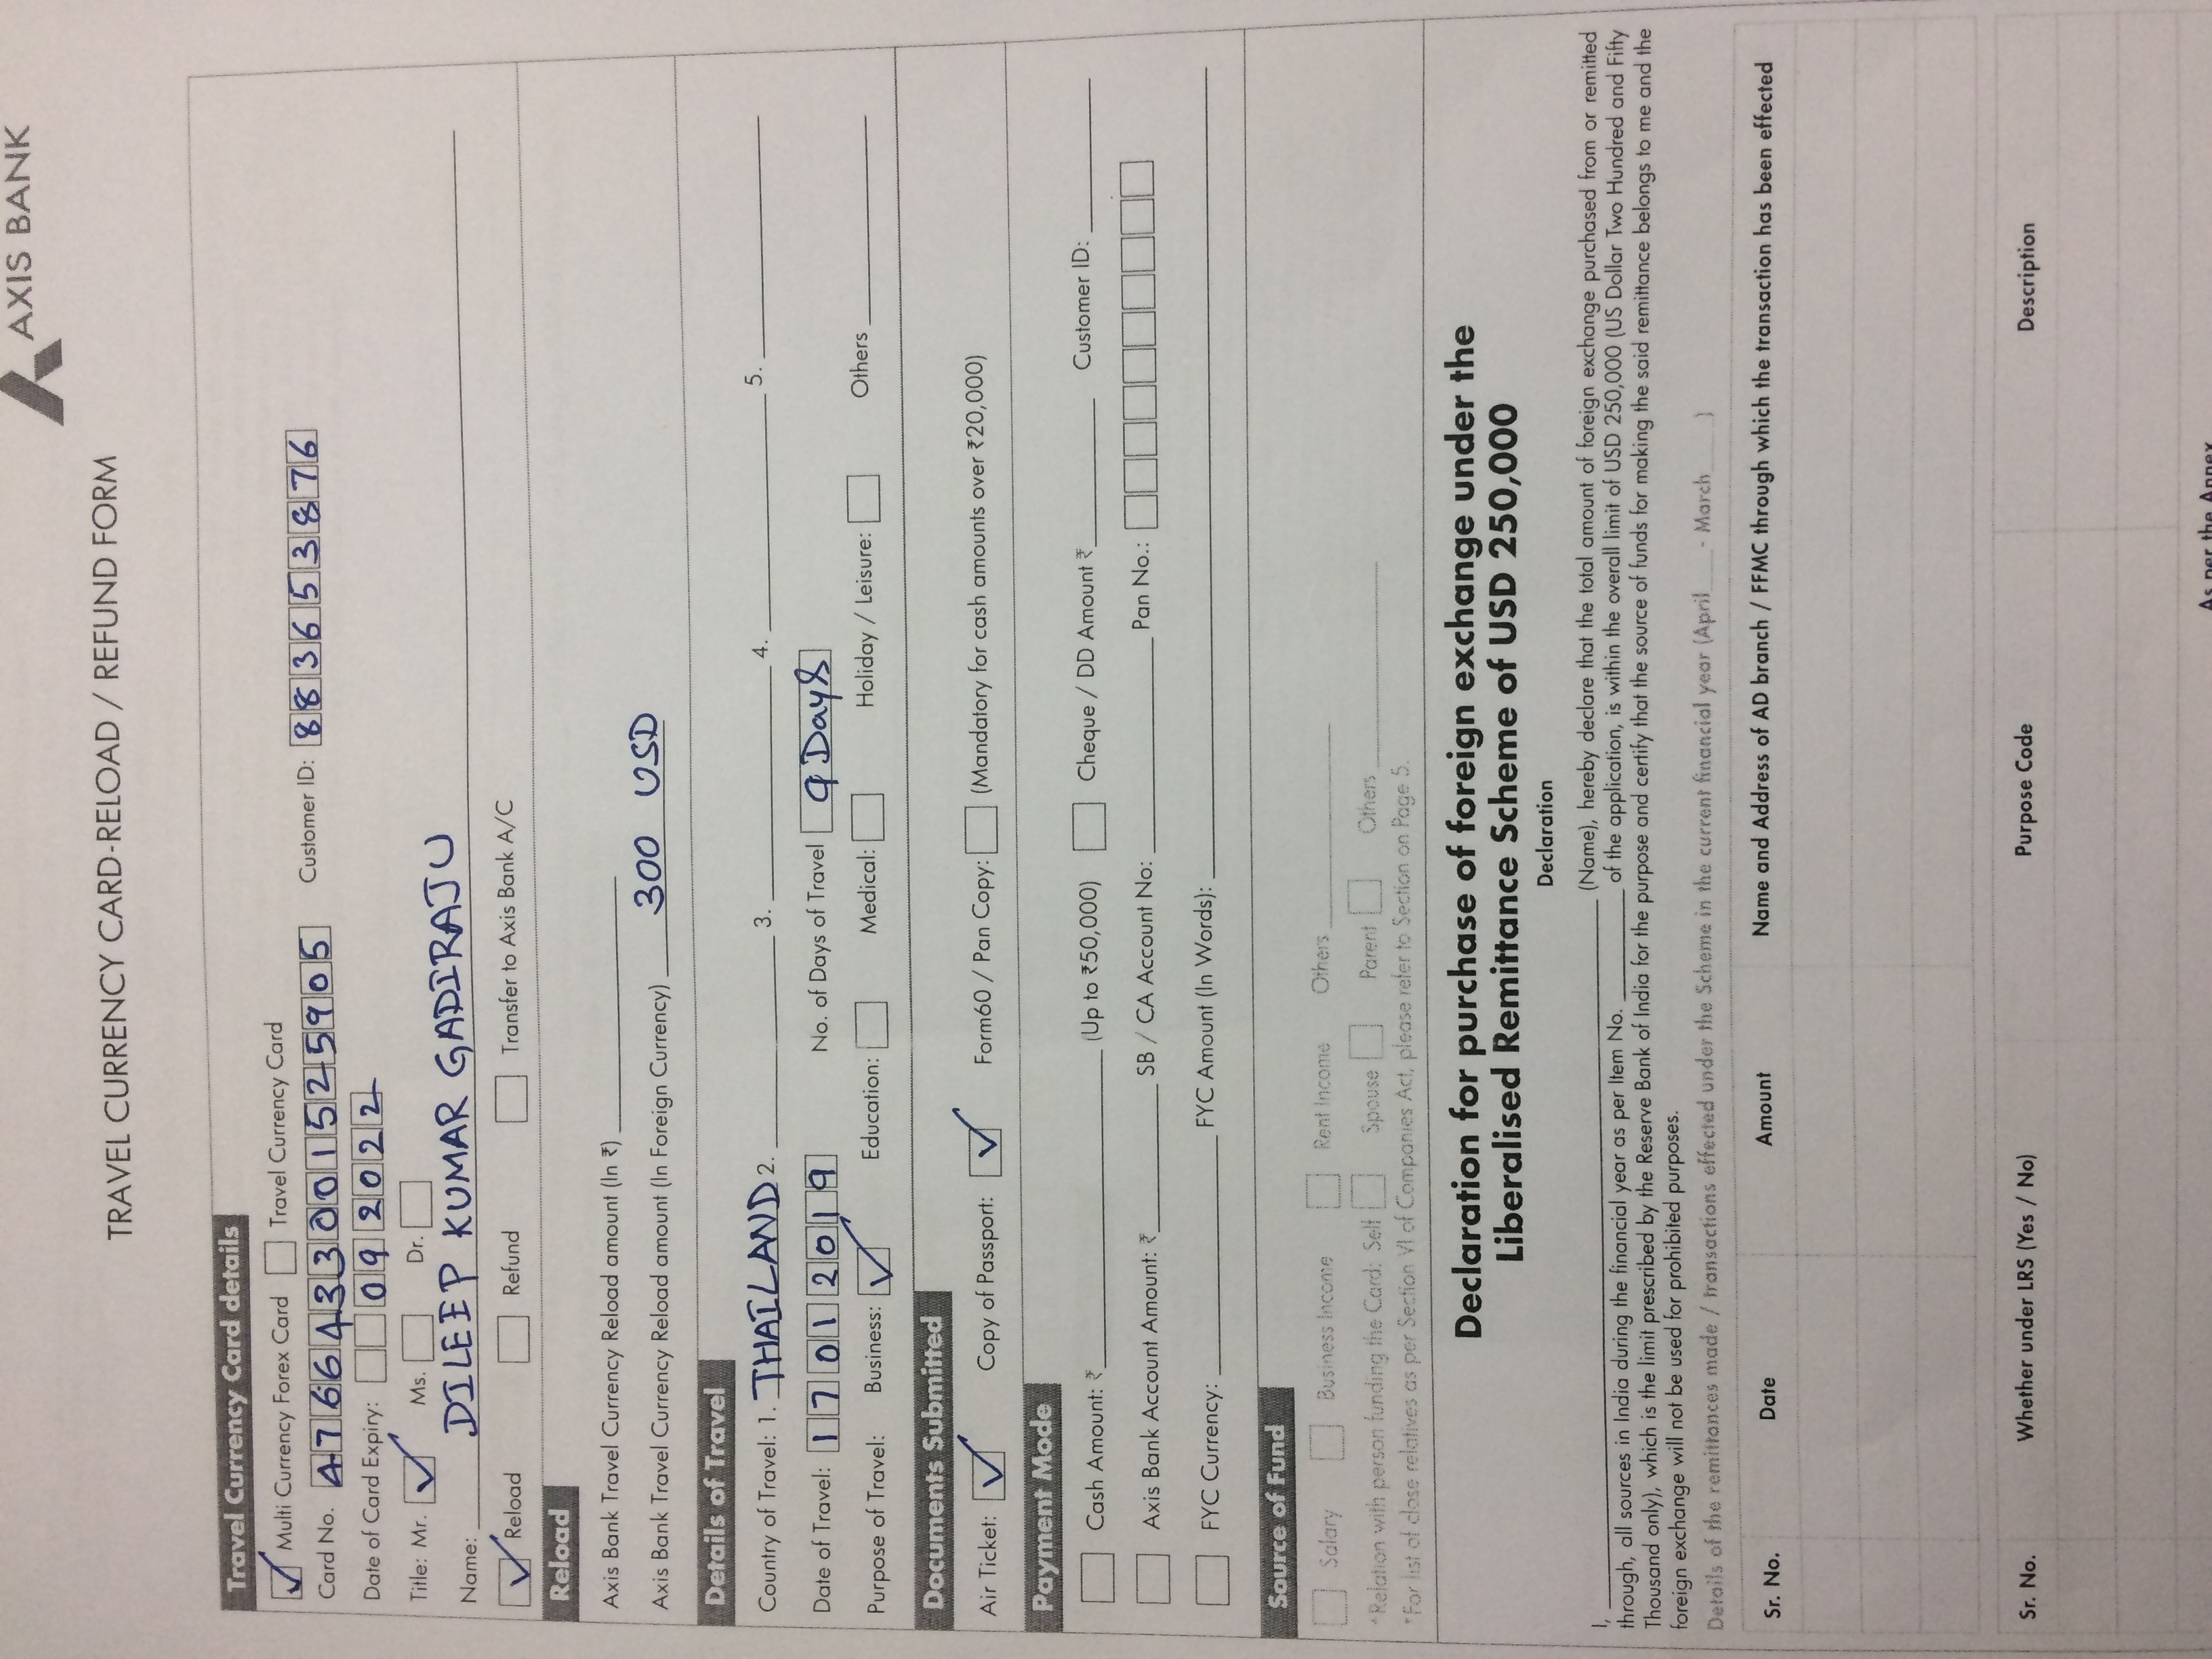 AXIS BANK
TRAVEL CURRENCY CARD-RELOAD / REFUND FORM
Travel Currency Card details
Multi Currency Forex Card Travel Currency Card
Card No. 4766433001525905 Customer ID: 883653876
Date of Card Expiry: 092022
Title: Mr. Ms. Dr.
Name: DILEEP KUMAR GADIRAJU
Reload Refund Transfer to Axis Bank A/C
Reload
Axis Bank Travel Currency Reload amount (In ₹)
Axis Bank Travel Currency Reload amount (In Foreign Currency) 300 USD
Details of Travel
Country of Travel: 1. THAILAND 2. 3. 4. 5.
Date of Travel: 17012019 No. of Days of Travel 9 Days
Purpose of Travel: Business: Education: Medical: Holiday / Leisure: Others
Documents Submitted
Air Ticket: Copy of Passport: Form60 / Pan Copy: (Mandatory for cash amounts over ₹20,000)
Payment Mode
Cash Amount: ₹ (Up to ₹50,000) Cheque / DD Amount ₹ Customer ID:
Axis Bank Account Amount: ₹ SB / CA Account No: Pan No.:
FYC Currency: FYC Amount (In Words):
Source of Fund
Salary Business Income Rent Income Others
*Relation with person funding the Card: Self Spouse Parent Others
*For list of close relatives as per Section VI of Companies Act, please refer to Section on Page 5.
Declaration for purchase of foreign exchange under the
Liberalised Remittance Scheme of USD 250,000
Declaration
I, (Name), hereby declare that the total amount of foreign exchange purchased from or remitted
through, all sources in India during the financial year as per Item No. of the application, is within the overall limit of USD 250,000 (US Dollar Two Hundred and Fifty
Thousand only), which is the limit prescribed by the Reserve Bank of India for the purpose and certify that the source of funds for making the said remittance belongs to me and the
foreign exchange will not be used for prohibited purposes.
Details of the remittances made / transactions effected under the Scheme in the current financial year (April - March )
Sr. No. Date Amount Name and Address of AD branch / FFMC through which the transaction has been effected
Sr. No. Whether under LRS (Yes / No) Purpose Code Description
As per the Annex